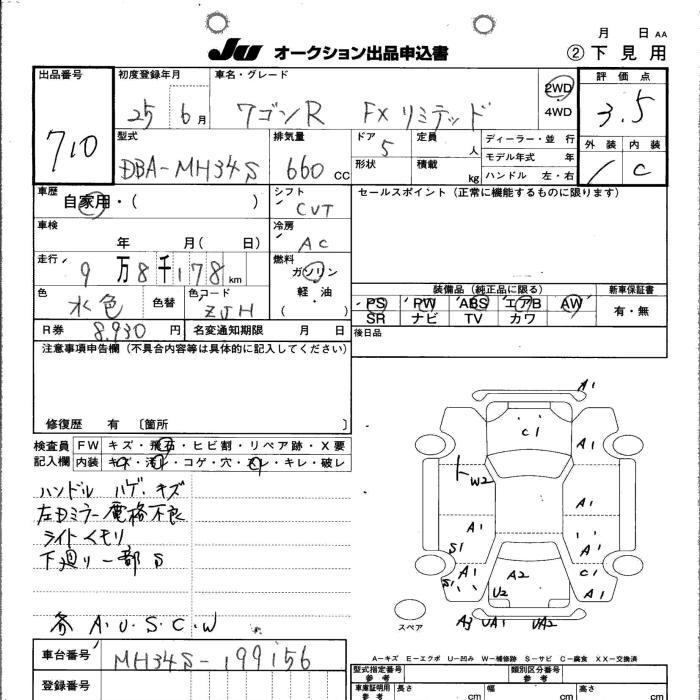 月 日 AA
JU オークション出品申込書 ②下見用
出品番号 初度登録年月 車名・グレード 2WD 4WD 評価点
710 25 6月 ワゴンR FX リミテッド 3.5
型式 排気量 ドア 定員 ディーラー・並 行 外装 内装
DBA-MH34S 660cc 5 人 モデル年式 年 C
形状 積載 kg ハンドル 左・右
車歴 シフト セールスポイント(正常に機能するものに限ります)
自家用・( ) CVT
車検 冷房
年 月( 日) AC
走行 燃料
9万8千178km ガソリン
軽・油
( )
色 色替 色コード 装備品(純正品に限る) 新車保証書
水色 ZJH PS PW ABS エアB AW 有・無
SR ナビ TV カワ
R券 8,930円 名変通知期限 月 日 後日品
注意事項申告欄(不具合内容等は具体的に記入してください)
修復歴 有 〔箇所 〕
検査員 FW キズ・飛石・ヒビ割・リペア跡・X要
記入欄 内装 キズ・汚レ・コゲ・穴・スレ・キレ・破レ
ハンドル ハゲ・キズ
左Dミラー電格不良
ライト クモリ
下廻り一部S
各 A・U・S・C・W
A1
C1 A1
W2
A1
A1 A1
S1
A1 A2 C1
S1 U2 A1
スペア A3 UA1 UA2
A-キズ E-エクボ U-凹み W-補修跡 S-サビ C-腐食 XX-交換済
車台番号 MH34S-199156
型式指定番号 参考 類別区分番号 参考
登録番号 車庫証明用 参考 長さ cm 幅 cm 高さ cm